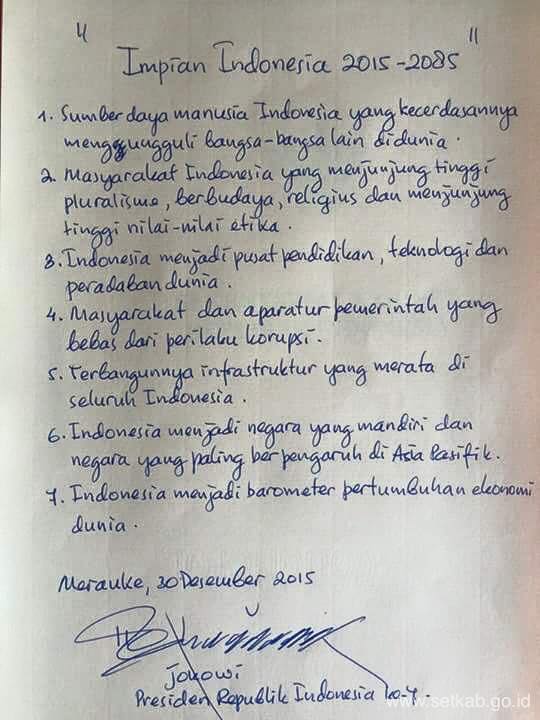 " Impian Indonesia 2015-2085 "
1. Sumber daya manusia Indonesia yang kecerdasannya
mengungguli bangsa-bangsa lain di dunia.
2. Masyarakat Indonesia yang menjunjung tinggi
pluralisme, berbudaya, religius dan menjunjung
tinggi nilai-nilai etika.
3. Indonesia menjadi pusat pendidikan, teknologi dan
peradaban dunia.
4. Masyarakat dan aparatur pemerintah yang
bebas dari perilaku korupsi.
5. Terbangunnya infrastruktur yang merata di
seluruh Indonesia.
6. Indonesia menjadi negara yang mandiri dan
negara yang paling berpengaruh di Asia Pasifik.
7. Indonesia menjadi barometer pertumbuhan ekonomi
dunia.
Merauke, 30 Desember 2015
Jokowi
Presiden Republik Indonesia ke-7.
www.setkab.go.id